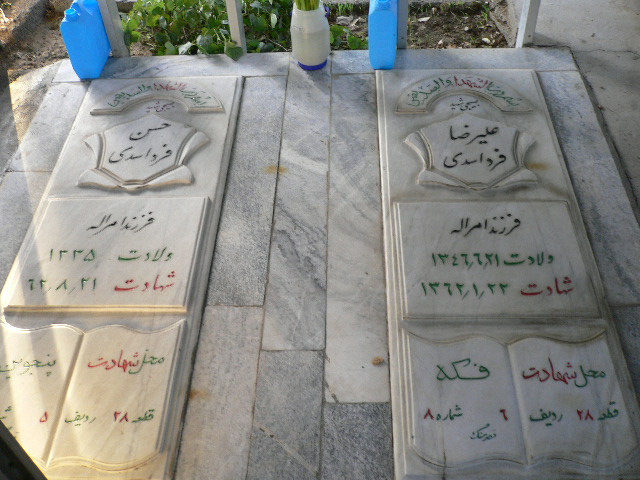 علیرضا
فرد اسدی
فرزند امراله
ولادت ۱۳۴۶٫۶٫۲۱
شهادت ۱۳۶۲٫۱٫۲۲
محل شهادت
فکه
قطعه ۲۸ ردیف ۶ شماره ۸
حسن
فرد اسدی
فرزند امراله
ولادت ۱۳۳۵
شهادت ۶۲٫۸٫۲۱
محل شهادت
پنجوین
قطعه ۲۸ ردیف ۵